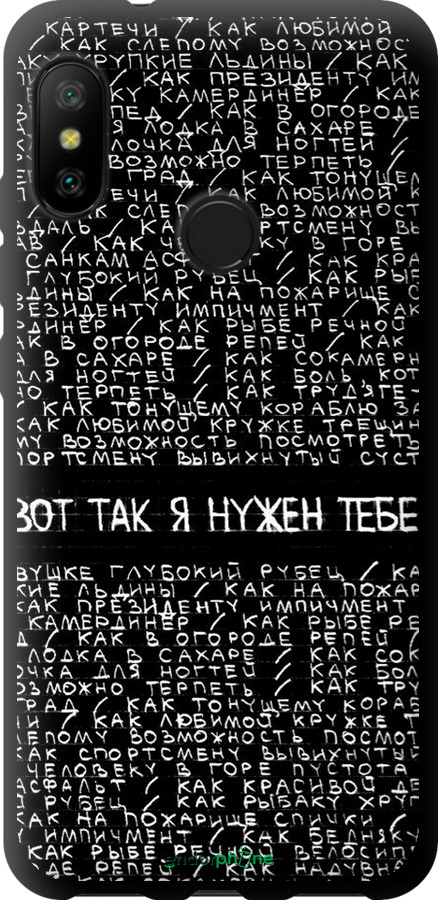 КАРТЕЧИ / КАК ЛЮБИМОЙ
/ КАК СЛЕПОМУ ВОЗМОЖНОС
ХРУПКИЕ ЛЬДИНЫ / КАК
/ КАК ПРЕЗИДЕНТУ ИМ
КАМЕРДИНЕР / КАК
/ КАК В ОГОРОДЕ
Я ЛОДКА В САХАРЕ /
ЛОЧКА ДЛЯ НОГТЕЙ /
ВОЗМОЖНО ТЕРПЕТЬ /
ГРАД / КАК ТОНУЩЕМ
ТЕЧИ / КАК ЛЮБИМОЙ К
/ КАК СЛЕП ВОЗМОЖНОСТ
ДАЛЬ / КАК РТСМЕНУ ВЫ
АВ / КАК ЧЕ КУ В ГОРЕ
САНКАМ АСФ / КАК КРА
ГЛУБОКИЙ РУБЕЦ / КАК РЫБ
ДИНЫ / КАК НА ПОЖАРИЩЕ С
ЕЗИДЕНТУ ИМПИЧМЕНТ / КАК
РДИНЕР / КАК РЫБЕ РЕЧНОЙ
АК В ОГОРОДЕ РЕПЕЙ / КАК
В САХАРЕ / КАК СОКАМЕРН
ДЛЯ НОГТЕЙ / КАК БОЛЬ КОТ
НО ТЕРПЕТЬ / КАК ТРУДЯГЕ
/ КАК ТОНУЩЕМУ КОРАБЛЮ ЗА
КАК ЛЮБИМОЙ КРУЖКЕ ТРЕЩИН
МУ ВОЗМОЖНОСТЬ ПОСМОТРЕТЬ
ПОРТСМЕНУ ВЫВИХНУТЫЙ СУСТ
ВОТ ТАК Я НУЖЕН ТЕБЕ
ВУШКЕ ГЛУБОКИЙ РУБЕЦ / КА
КИЕ ЛЬДИНЫ / КАК НА ПОЖАР
КАК ПРЕЗИДЕНТУ ИМПИЧМЕНТ
КАМЕРДИНЕР / КАК РЫБЕ РЕ
Д / КАК В ОГОРОДЕ РЕПЕЙ /
ЛОДКА В САХАРЕ / КАК СОК
ОЧКА ДЛЯ НОГТЕЙ / КАК БОЛ
ОЗМОЖНО ТЕРПЕТЬ / КАК ТРУ
РАД / КАК ТОНУЩЕМУ КОРАБ
И / КАК ЛЮБИМОЙ КРУЖКЕ Т
ЛЕПОМУ ВОЗМОЖНОСТЬ ПОСМОТ
АК СПОРТСМЕНУ ВЫВИХНУТЫЙ
ЧЕЛОВЕКУ В ГОРЕ ПУСТОТА
АСФАЛЬТ / КАК КРАСИВОЙ ДЕ
Й РУБЕЦ / КАК РЫБАКУ ХРУП
КАК НА ПОЖАРИЩЕ СПИЧКИ /
ИМПИЧМЕНТ / КАК БЕДНЯКУ
КАК РЫБЕ РЕЧНОЙ ВЕЛОСИП
ДЕ РЕПЕЙ / КАК НАДУВНА
endorphone